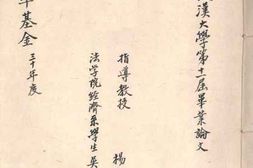 漢大學第十一屆畢業論文
指導教授 楊
法學院經濟系學生 吳
基金 三十年度